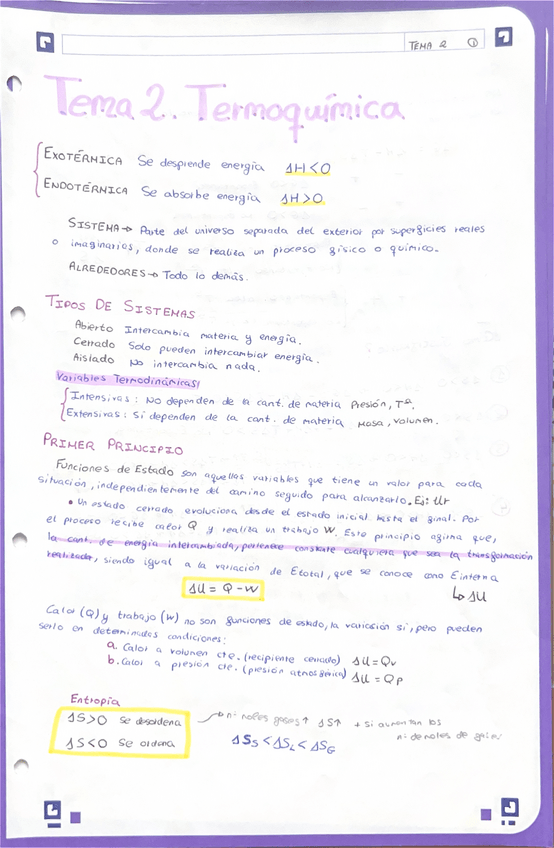 TEMA 2 ①
Tema 2. Termoquímica
EXOTÉRMICA Se desprende energía ΔH<0
ENDOTÉRMICA Se absorbe energía ΔH>0
SISTEMA→ Parte del universo separada del exterior por superficies reales
o imaginarios, donde se realiza un proceso físico o químico.
ALREDEDORES→ Todo lo demás.
TIPOS DE SISTEMAS
Abierto Intercambia materia y energía.
Cerrado Solo pueden intercambiar energía.
Aislado No intercambia nada.
Variables Termodinámicas
Intensivas: No dependen de la cant. de materia Presión, Tª.
Extensivas: Si dependen de la cant. de materia Masa, volumen.
PRIMER PRINCIPIO
Funciones de Estado son aquellas variables que tiene un valor para cada
situación, independientemente del camino seguido para alcanzarlo. Ej:
• Un estado cerrado evoluciona desde el estado inicial hasta el final. Por
el proceso recibe calor Q y realiza un trabajo W. Este principio afirma que,
la cant. de energía intercambiada, pertenece constante cualquiera que sea la transformación
realizada, siendo igual a la variación de Etotal, que se conoce como Einterna
ΔU = Q - W
↳ ΔU
Calor (Q) y trabajo (W) no son funciones de estado, la variación sí, pero pueden
serlo en determinados condiciones:
a. Calor a volumen cte. (recipiente cerrado) ΔU=Qv
b. Calor a presión cte. (presión atmosférica) ΔU=Qp
Entropía
ΔS>0 Se desordena
nº moles gases↑ ΔS↑ + si aumentan los
nº de moles de gases
ΔS<0 Se ordena
ΔSs<ΔSL<ΔSG